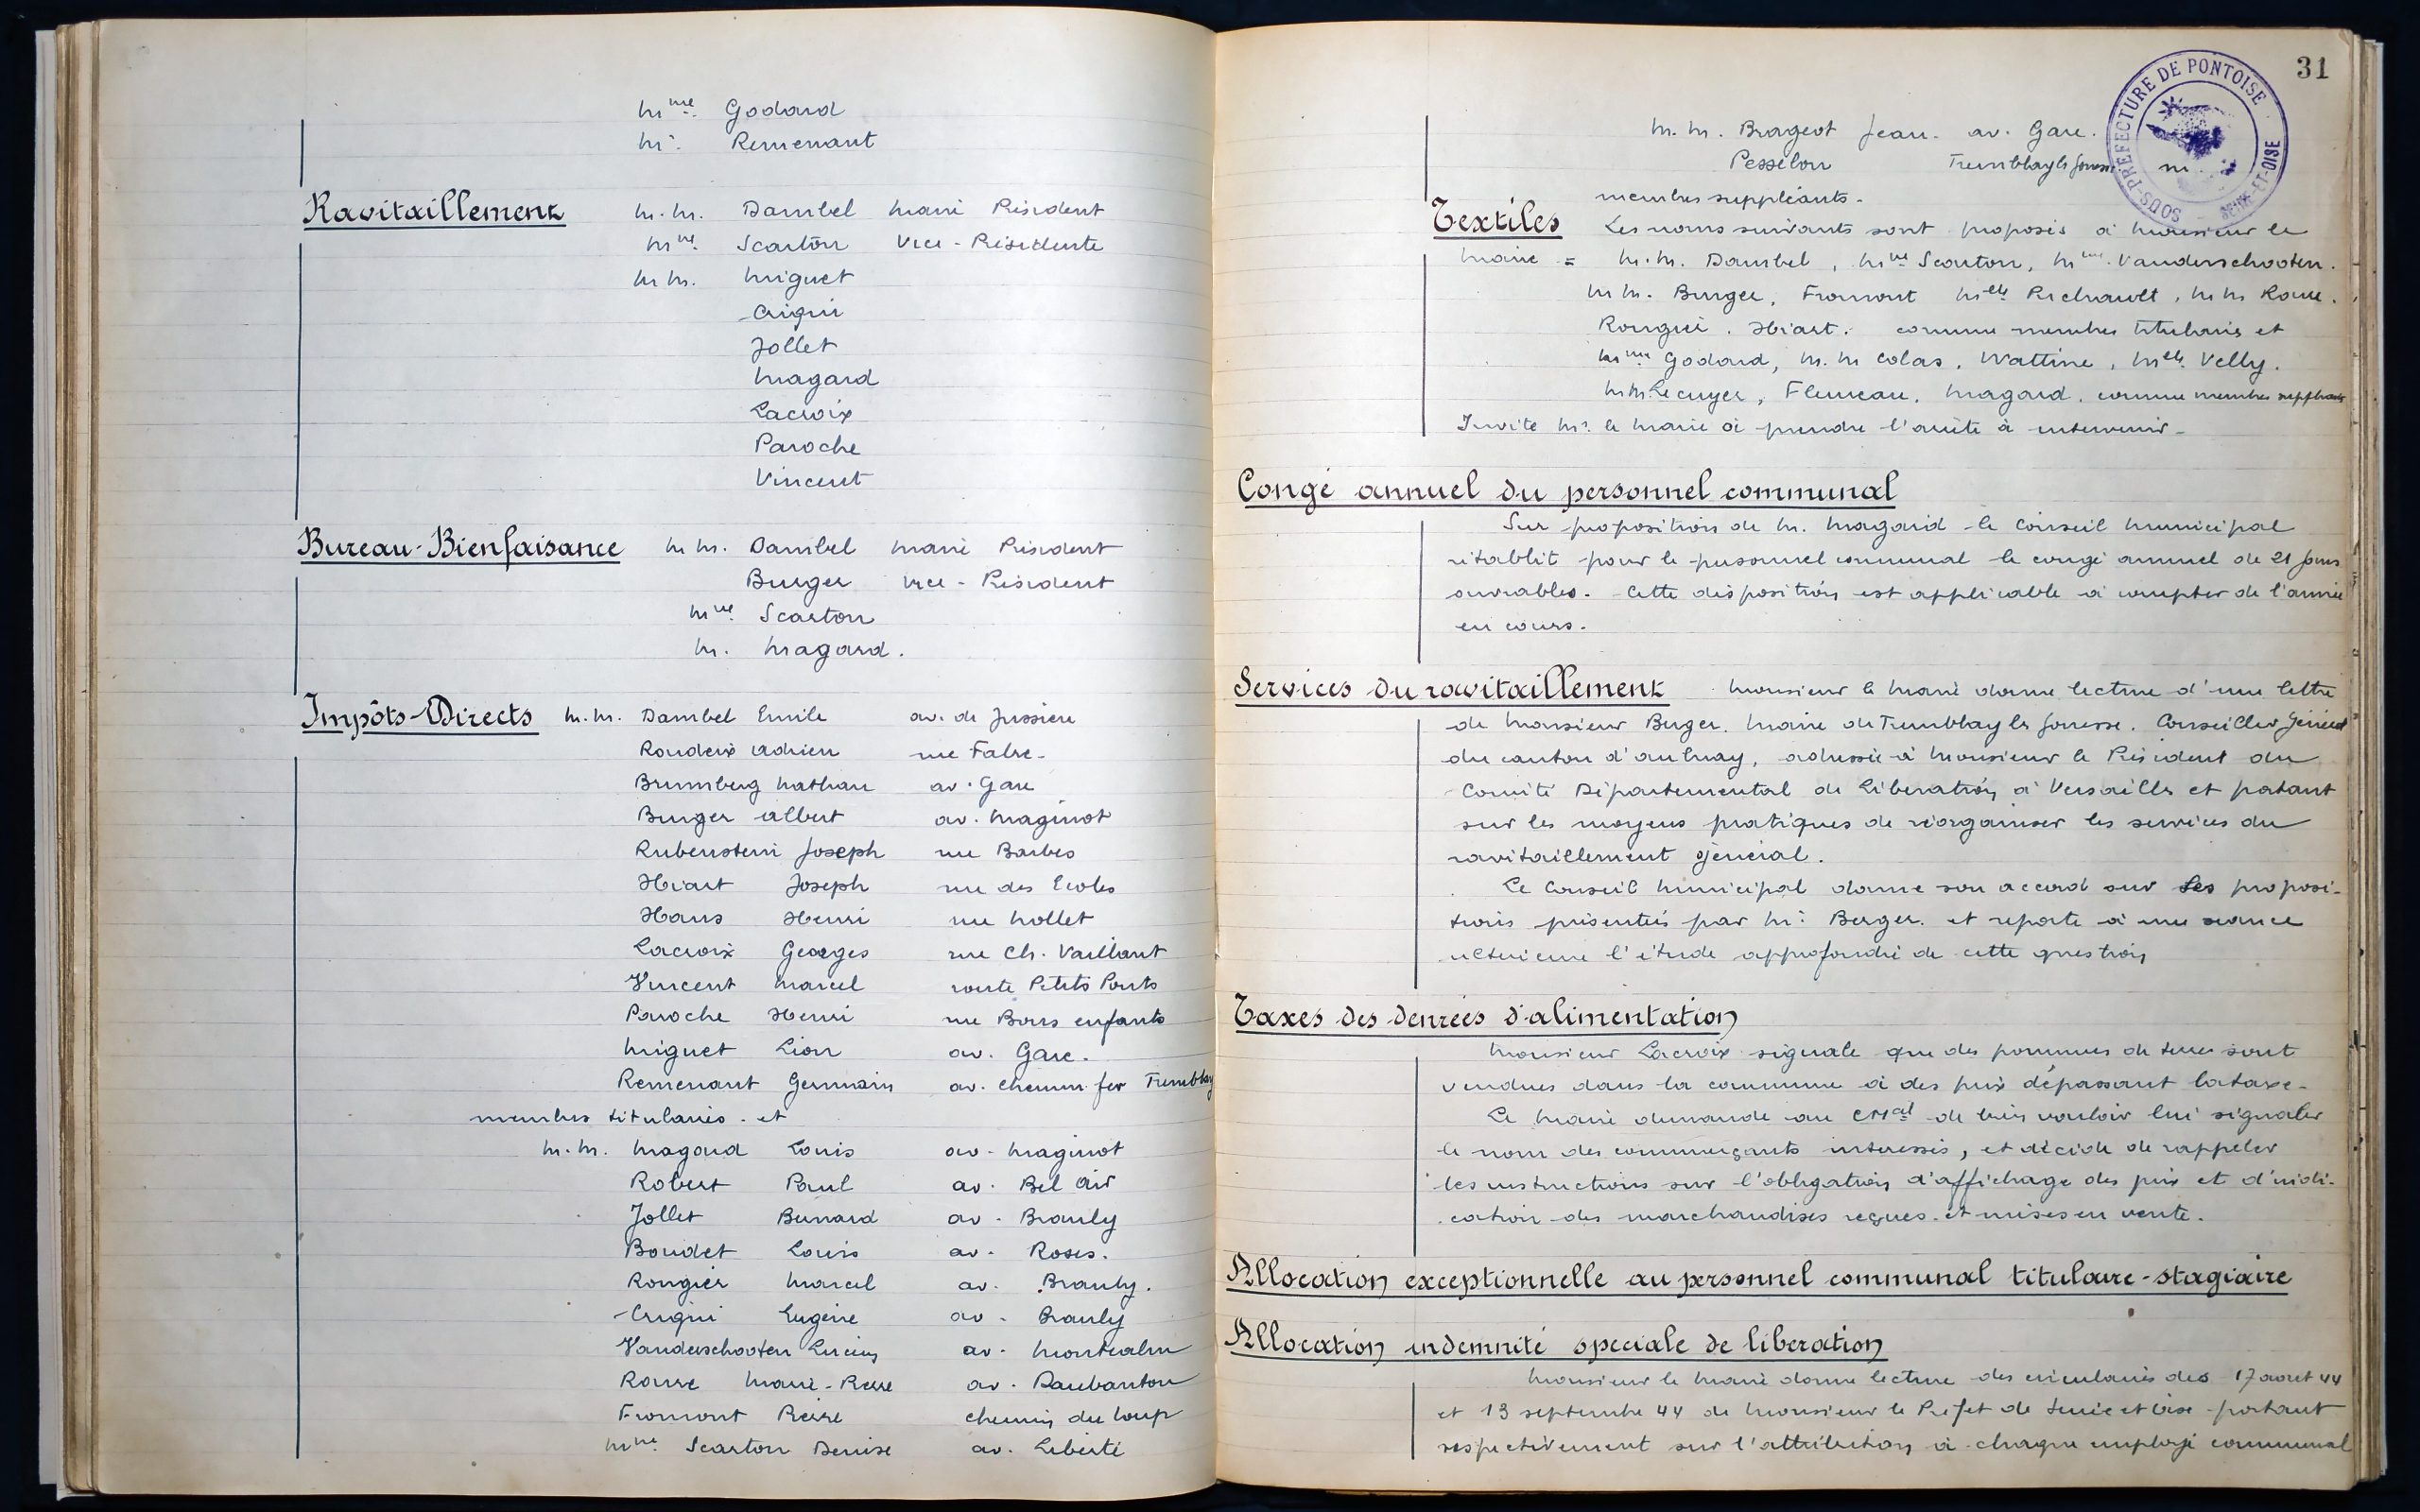 Mme Godard
Mr. Remenant
Ravitaillement M.M. Dambel Maire Président
Mme Scarton Vice-Présidente
M.M. Miguet
Crigui
Jollet
Magard
Lacroix
Paroche
Vincent
Bureau-Bienfaisance M.M. Dambel Maire Président
Burger Vice-Président
Mme Scarton
M. Magard.
Impôts-Directs M.M. Dambel Emile av. de Jussieu
Roudeix Adrien rue Fabre-
Brumberg Nathan av. Gare
Burger Albert av. Maginot
Rubenstein Joseph rue Barbes
Hiart Joseph rue des Ecoles
Hans Henri rue Mollet
Lacroix Georges rue Ch. Vaillant
Vincent Marcel route Petits Ponts
Paroche Henri rue Bons enfants
Miguet Léon av. Gare.
Remenant Germain av. Chemin fer Tremblay
membres titulaires. et
M.M. Magard Louis av. Maginot
Robert Paul av. Bel air
Jollet Bernard av. Branly
Boudet Louis av. Roses.
Rougier Marcel av. Branly.
Crigui Eugène av. Branly
Vanderschooten Lucien av. Montcalm
Rousse Marie-Rose av. Daubanton
Fromont Pierre chemin du Loup
Mme Scarton Denise av. Liberté
31
SOUS-PRÉFECTURE DE PONTOISE
SEINE-ET-OISE
M.M. Brageot Jean. av. Gare.
Pesselon Tremblay les Gonesse
membres suppléants.
Textiles Les noms suivants sont proposés à Monsieur le
Maire = M.M. Dambel, Mme Scarton, Mme Vanderschooten.
M.M. Burger, Fromont Melle Richault, M.M.
Rougier. Hiart. comme membres titulaires et
Mme Godard, M.M Colas, Wattine, Melle Velly.
M.M. Lecuyer, Flumeau, Magard, comme membres suppléants
Invite Mr. le Maire à prendre l'arrêté à intervenir-
Congé annuel du personnel communal
Sur proposition de M. Magard le Conseil Municipal
rétablit pour le personnel communal le congé annuel de 21 jours
ouvrables. Cette disposition est applicable à compter de l'année
en cours.
Services du ravitaillement Monsieur le Maire donne lecture d'une lettre
de Monsieur Berger. Maire de Tremblay les Gonesse. Conseiller Général
du canton d'aulnay, adressée à Monsieur le Président du
Comité Départemental de Libération à Versailles et portant
sur les moyens pratiques de réorganiser les services du
ravitaillement général.
Le Conseil Municipal donne son accord sur les proposi-
tions présentées par Mr. Berger. et reporte à une séance
ultérieure l'étude approfondie de cette question
Taxes des denrées d'alimentation
Monsieur Lacroix signale que des pommes de terre sont
vendues dans la commune à des prix dépassant la taxe-
Le Maire demande au CMal de bien vouloir lui signaler
le nom des commerçants interessés, et décide de rappeler
les instructions sur l'obligation d'affichage des prix et d'indi-
cation des marchandises reçues et mises en vente.
Allocation exceptionnelle au personnel communal titulaire-stagiaire
Allocation indemnité speciale de liberation
Monsieur le Maire donne lecture des circulaires des 17 aout 44
et 13 septembre 44 de Monsieur le Préfet de Seine et Oise portant
respectivement sur l'attribution à chaque employé communal